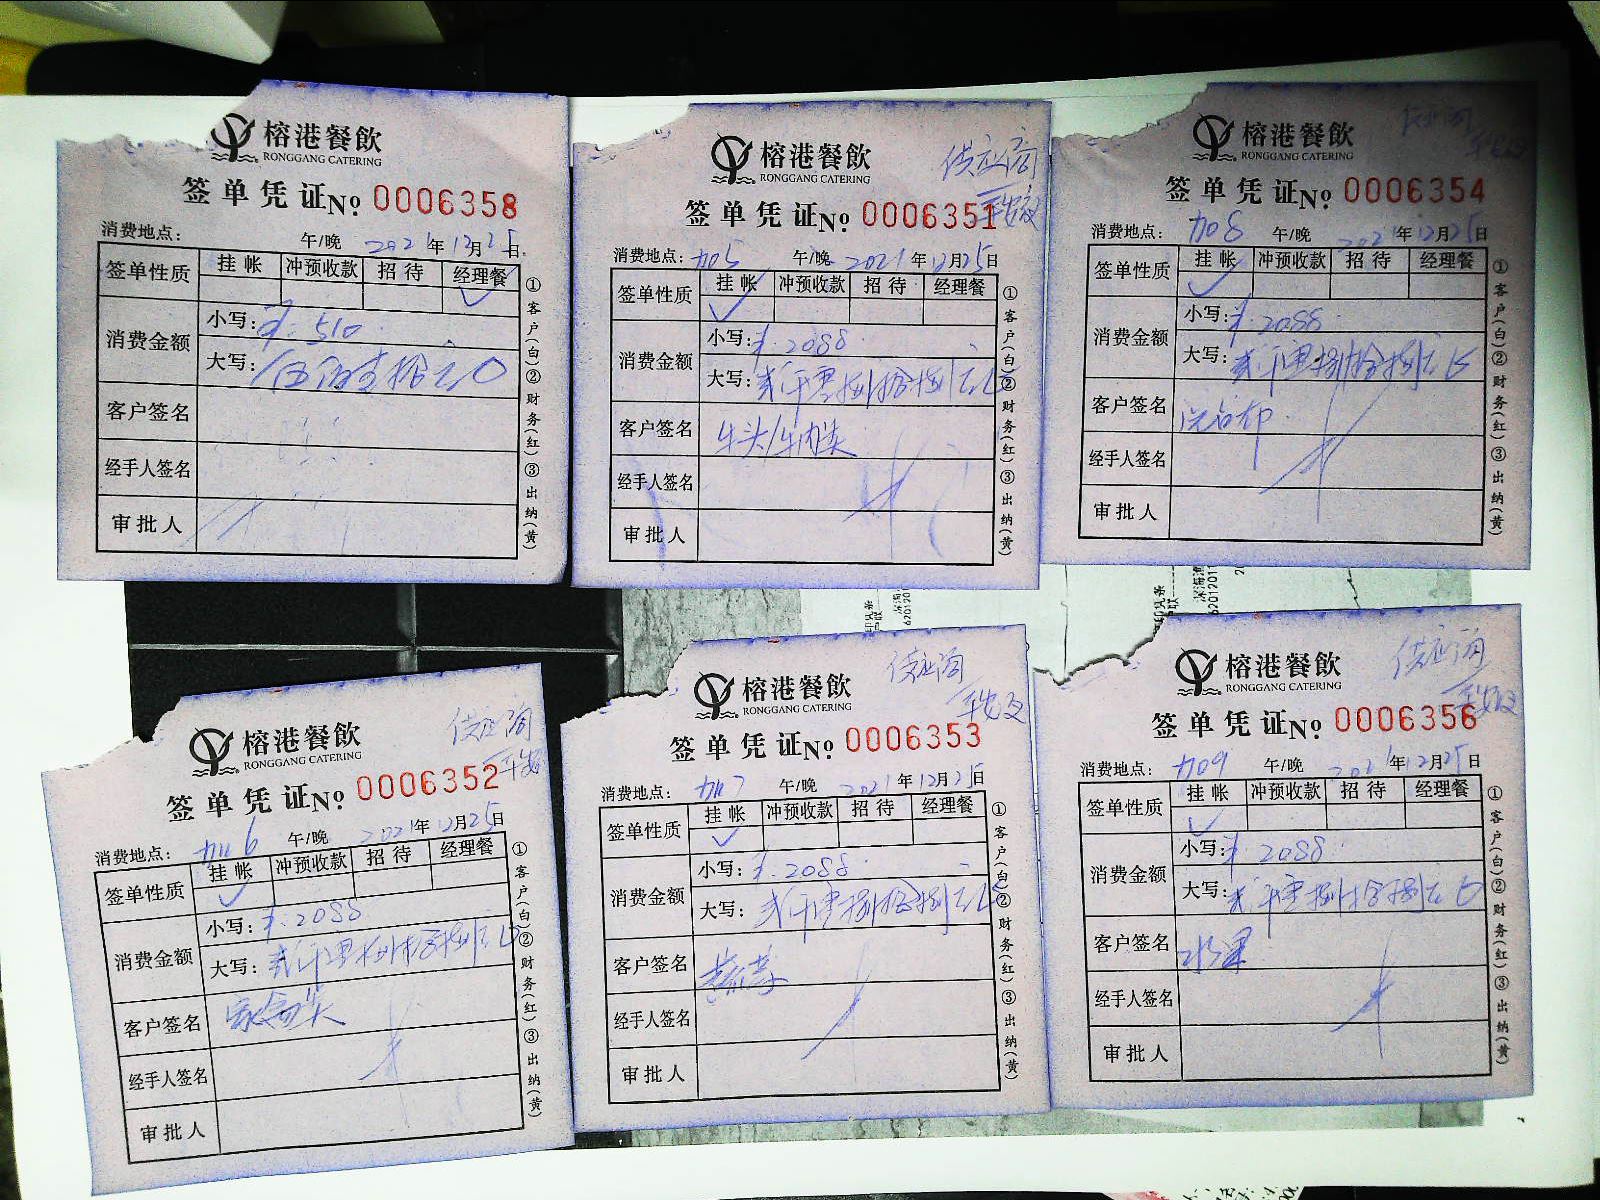 榕港餐飲
RONGGANG CATERING
签单凭证No. 0006358
消费地点: 午/晚 2021年12月25日
签单性质 挂帐 冲预收款 招待 经理餐
消费金额 小写: ¥:510
大写: 伍佰壹拾元
客户签名
经手人签名
审批人
①客户(白)②财务(红)③出纳(黄)
榕港餐飲
RONGGANG CATERING
供应商
签单凭证No. 0006351
消费地点: 加5 午/晚 2021年12月25日
签单性质 挂帐 冲预收款 招待 经理餐
消费金额 小写: ¥:2088
大写: 贰仟零捌拾捌元
客户签名 牛头/牛肉类
经手人签名
审批人
①客户(白)②财务(红)③出纳(黄)
榕港餐飲
RONGGANG CATERING
签单凭证No. 0006354
消费地点: 加08 午/晚 2021年12月25日
签单性质 挂帐 冲预收款 招待 经理餐
消费金额 小写: ¥:2088
大写: 贰仟零捌拾捌元
客户签名
经手人签名
审批人
①客户(白)②财务(红)③出纳(黄)
榕港餐飲
RONGGANG CATERING
供应商
签单凭证No. 0006352
消费地点: 加6 午/晚 2021年12月25日
签单性质 挂帐 冲预收款 招待 经理餐
消费金额 小写: ¥:2088
大写: 贰仟零捌拾捌元
客户签名
经手人签名
审批人
①客户(白)②财务(红)③出纳(黄)
榕港餐飲
RONGGANG CATERING
供应商
签单凭证No. 0006353
消费地点: 加7 午/晚 2021年12月25日
签单性质 挂帐 冲预收款 招待 经理餐
消费金额 小写: ¥:2088
大写: 贰仟零捌拾捌元
客户签名
经手人签名
审批人
①客户(白)②财务(红)③出纳(黄)
榕港餐飲
RONGGANG CATERING
供应商
签单凭证No. 0006356
消费地点: 加09 午/晚 2021年12月25日
签单性质 挂帐 冲预收款 招待 经理餐
消费金额 小写: ¥:2088
大写: 贰仟零捌拾捌元
客户签名 水果
经手人签名
审批人
①客户(白)②财务(红)③出纳(黄)